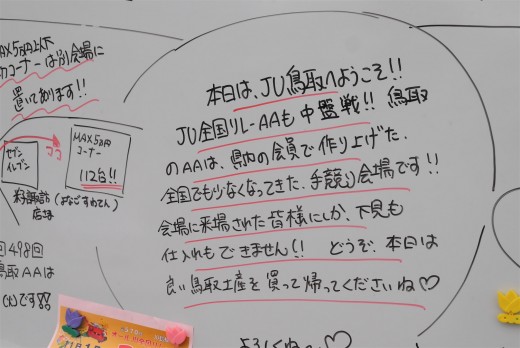 MAX5万円以下
コーナーは別会場に
置いてあります!!
ココ
MAX5万円
コーナー
112台!!
セブン
イレブン
(はなごすわてん)
店様
回498回
鳥取AAは
(火)です!!
本日は、JU鳥取へようこそ!!
JU全国リレーAAも中盤戦!! 鳥取
のAAは、県内の会員で作り上げた、
全国でも少なくなってきた、手競り会場です!!
会場に来場された皆様にしか、下見も
仕入れもできません(!! どうぞ、本日は
良い鳥取土産を買って帰ってくださいね♡